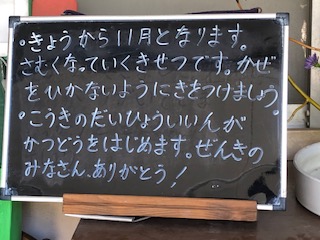 ・きょうから11月となります。
さむくなっていくきせつです。かぜ
をひかないようにきをつけましょう。
・こうきのだいひょういいんが
かつどうをはじめます。ぜんきの
みなさん、ありがとう!